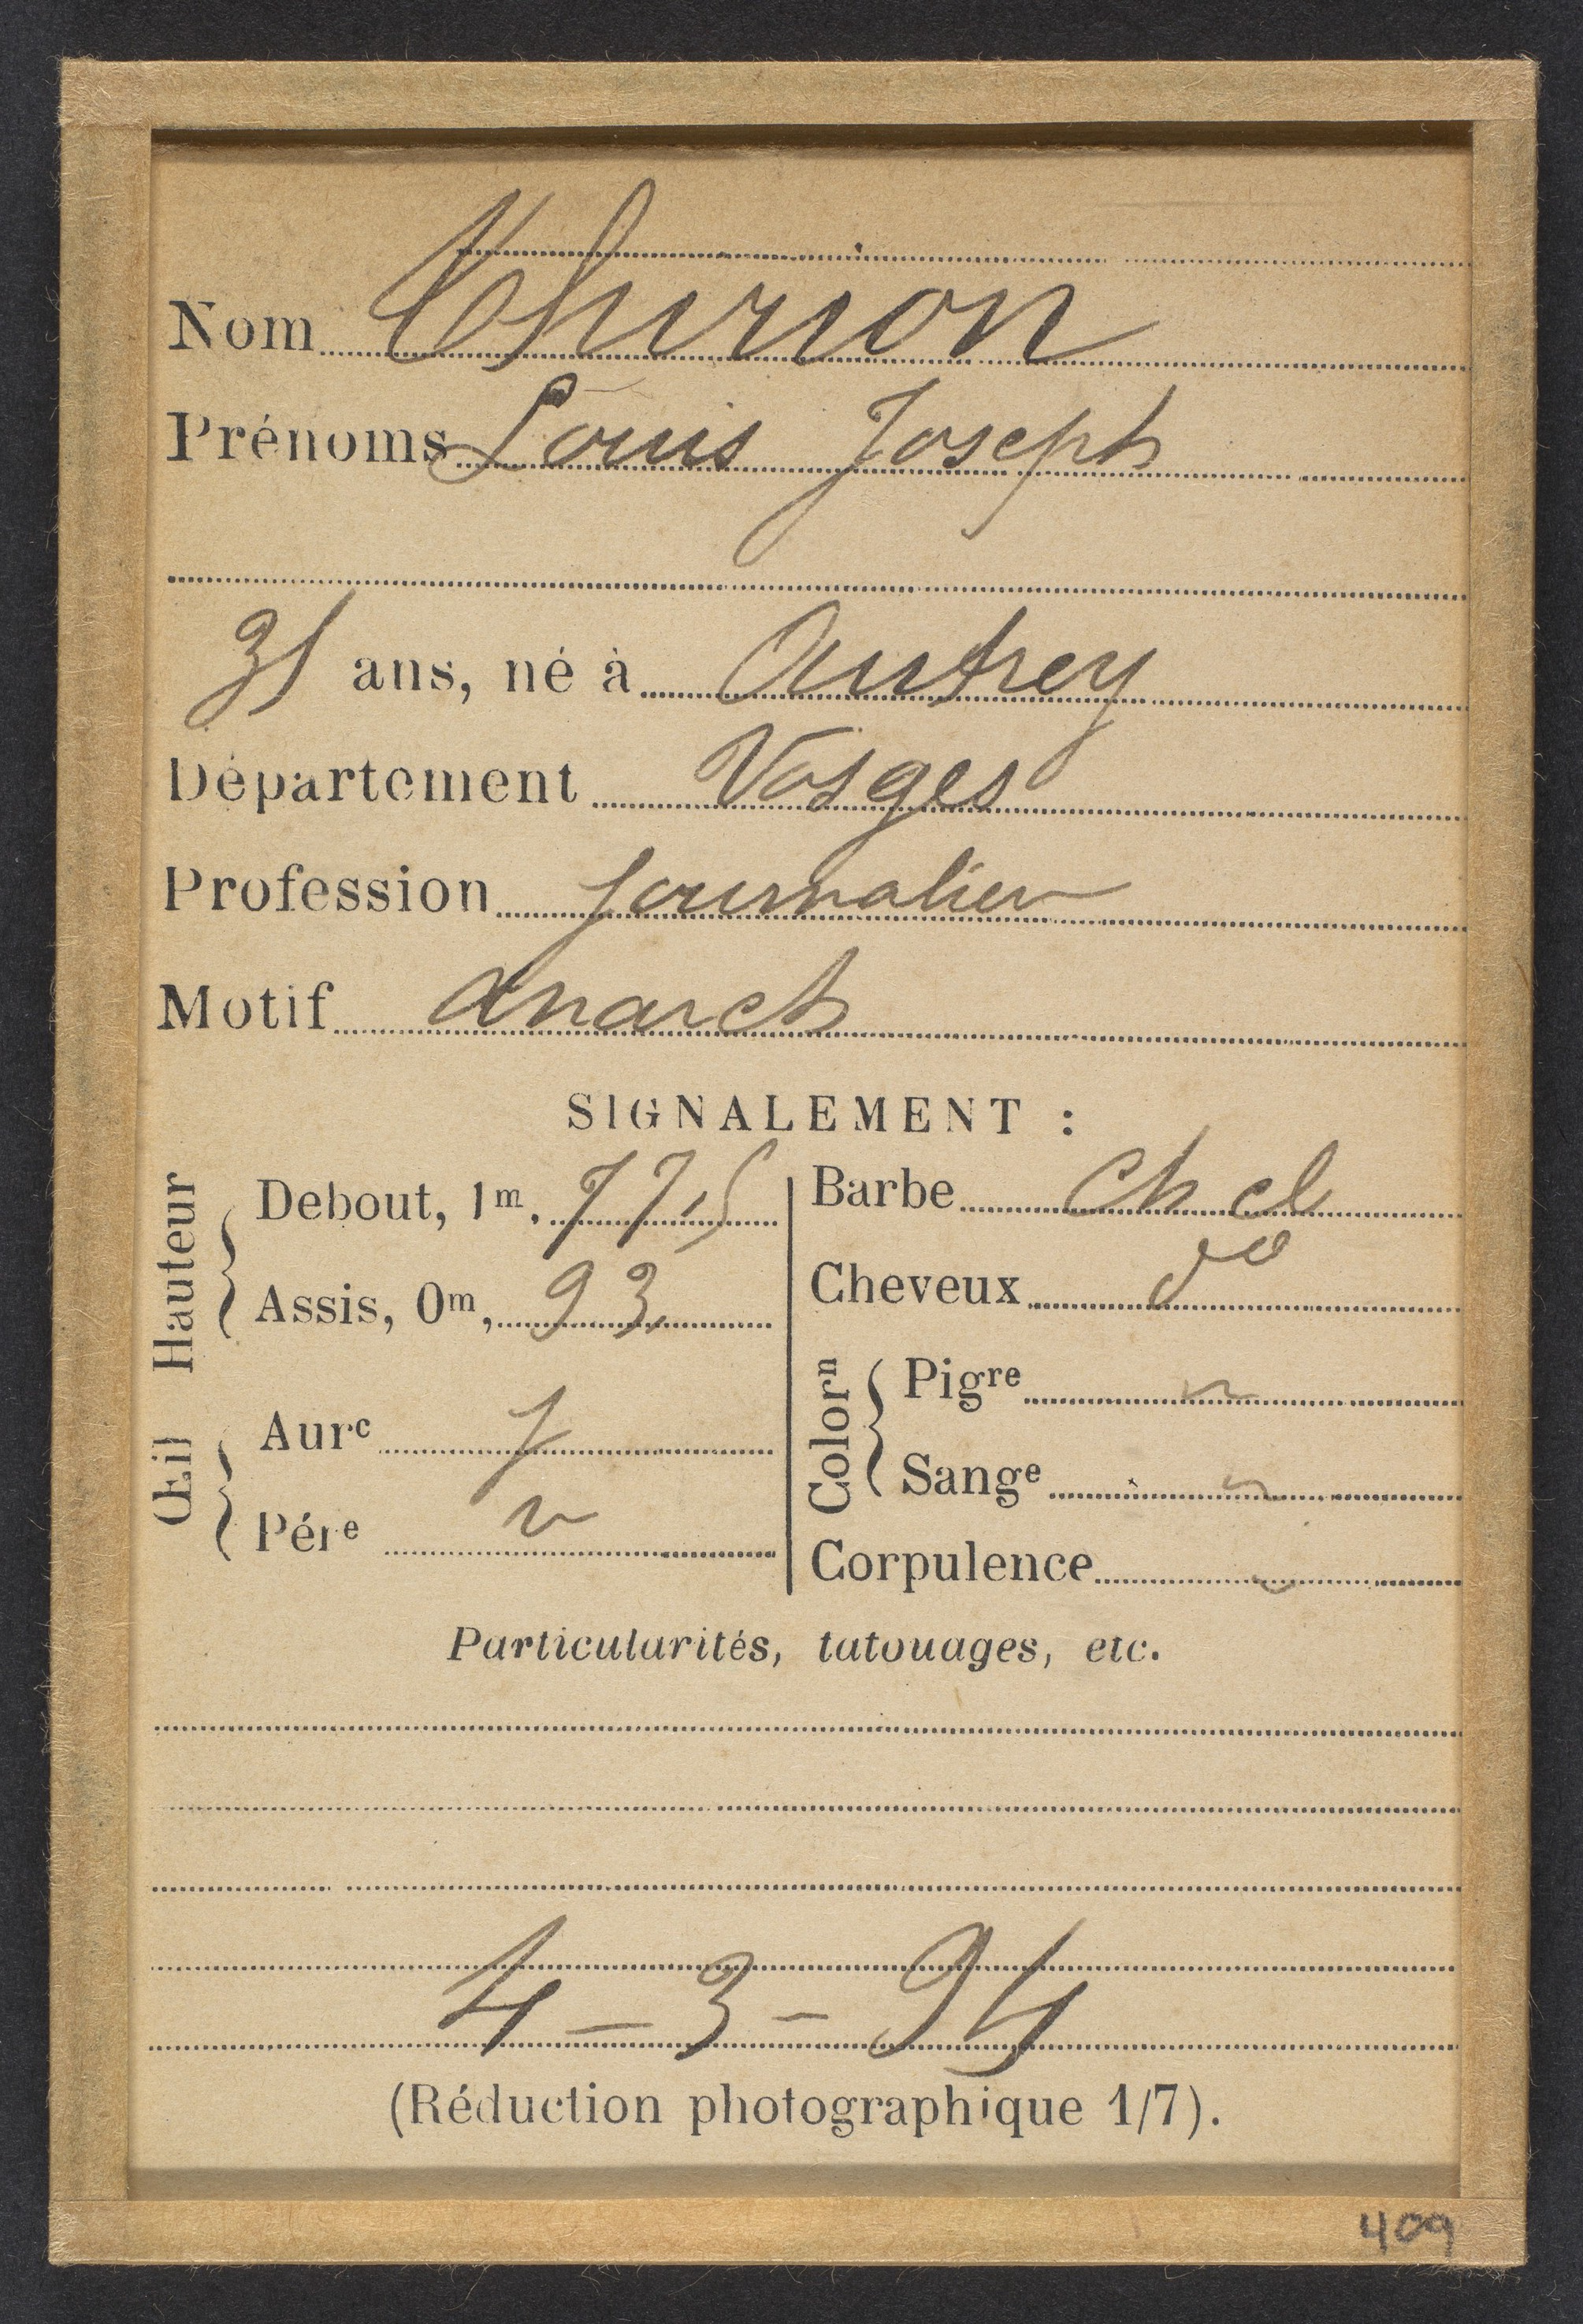 Nom Thirion
Prénoms Louis Joseph
31 ans, né à Autrey
Département Vosges
Profession Journalier
Motif Anarch
SIGNALEMENT :
Hauteur
Debout, 1m, 77,5
Assis, 0m, 93,
Œil
Aure j
Pére v
Barbe Ch cl
Cheveux do
Colorn
Pigre
Sange
Corpulence
Particularités, tatouages, etc.
4 - 3 - 94
(Réduction photographique 1/7).
409